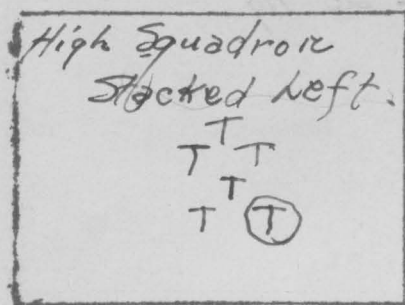 High Squadron
Stacked Left.
T
T T
T
T T